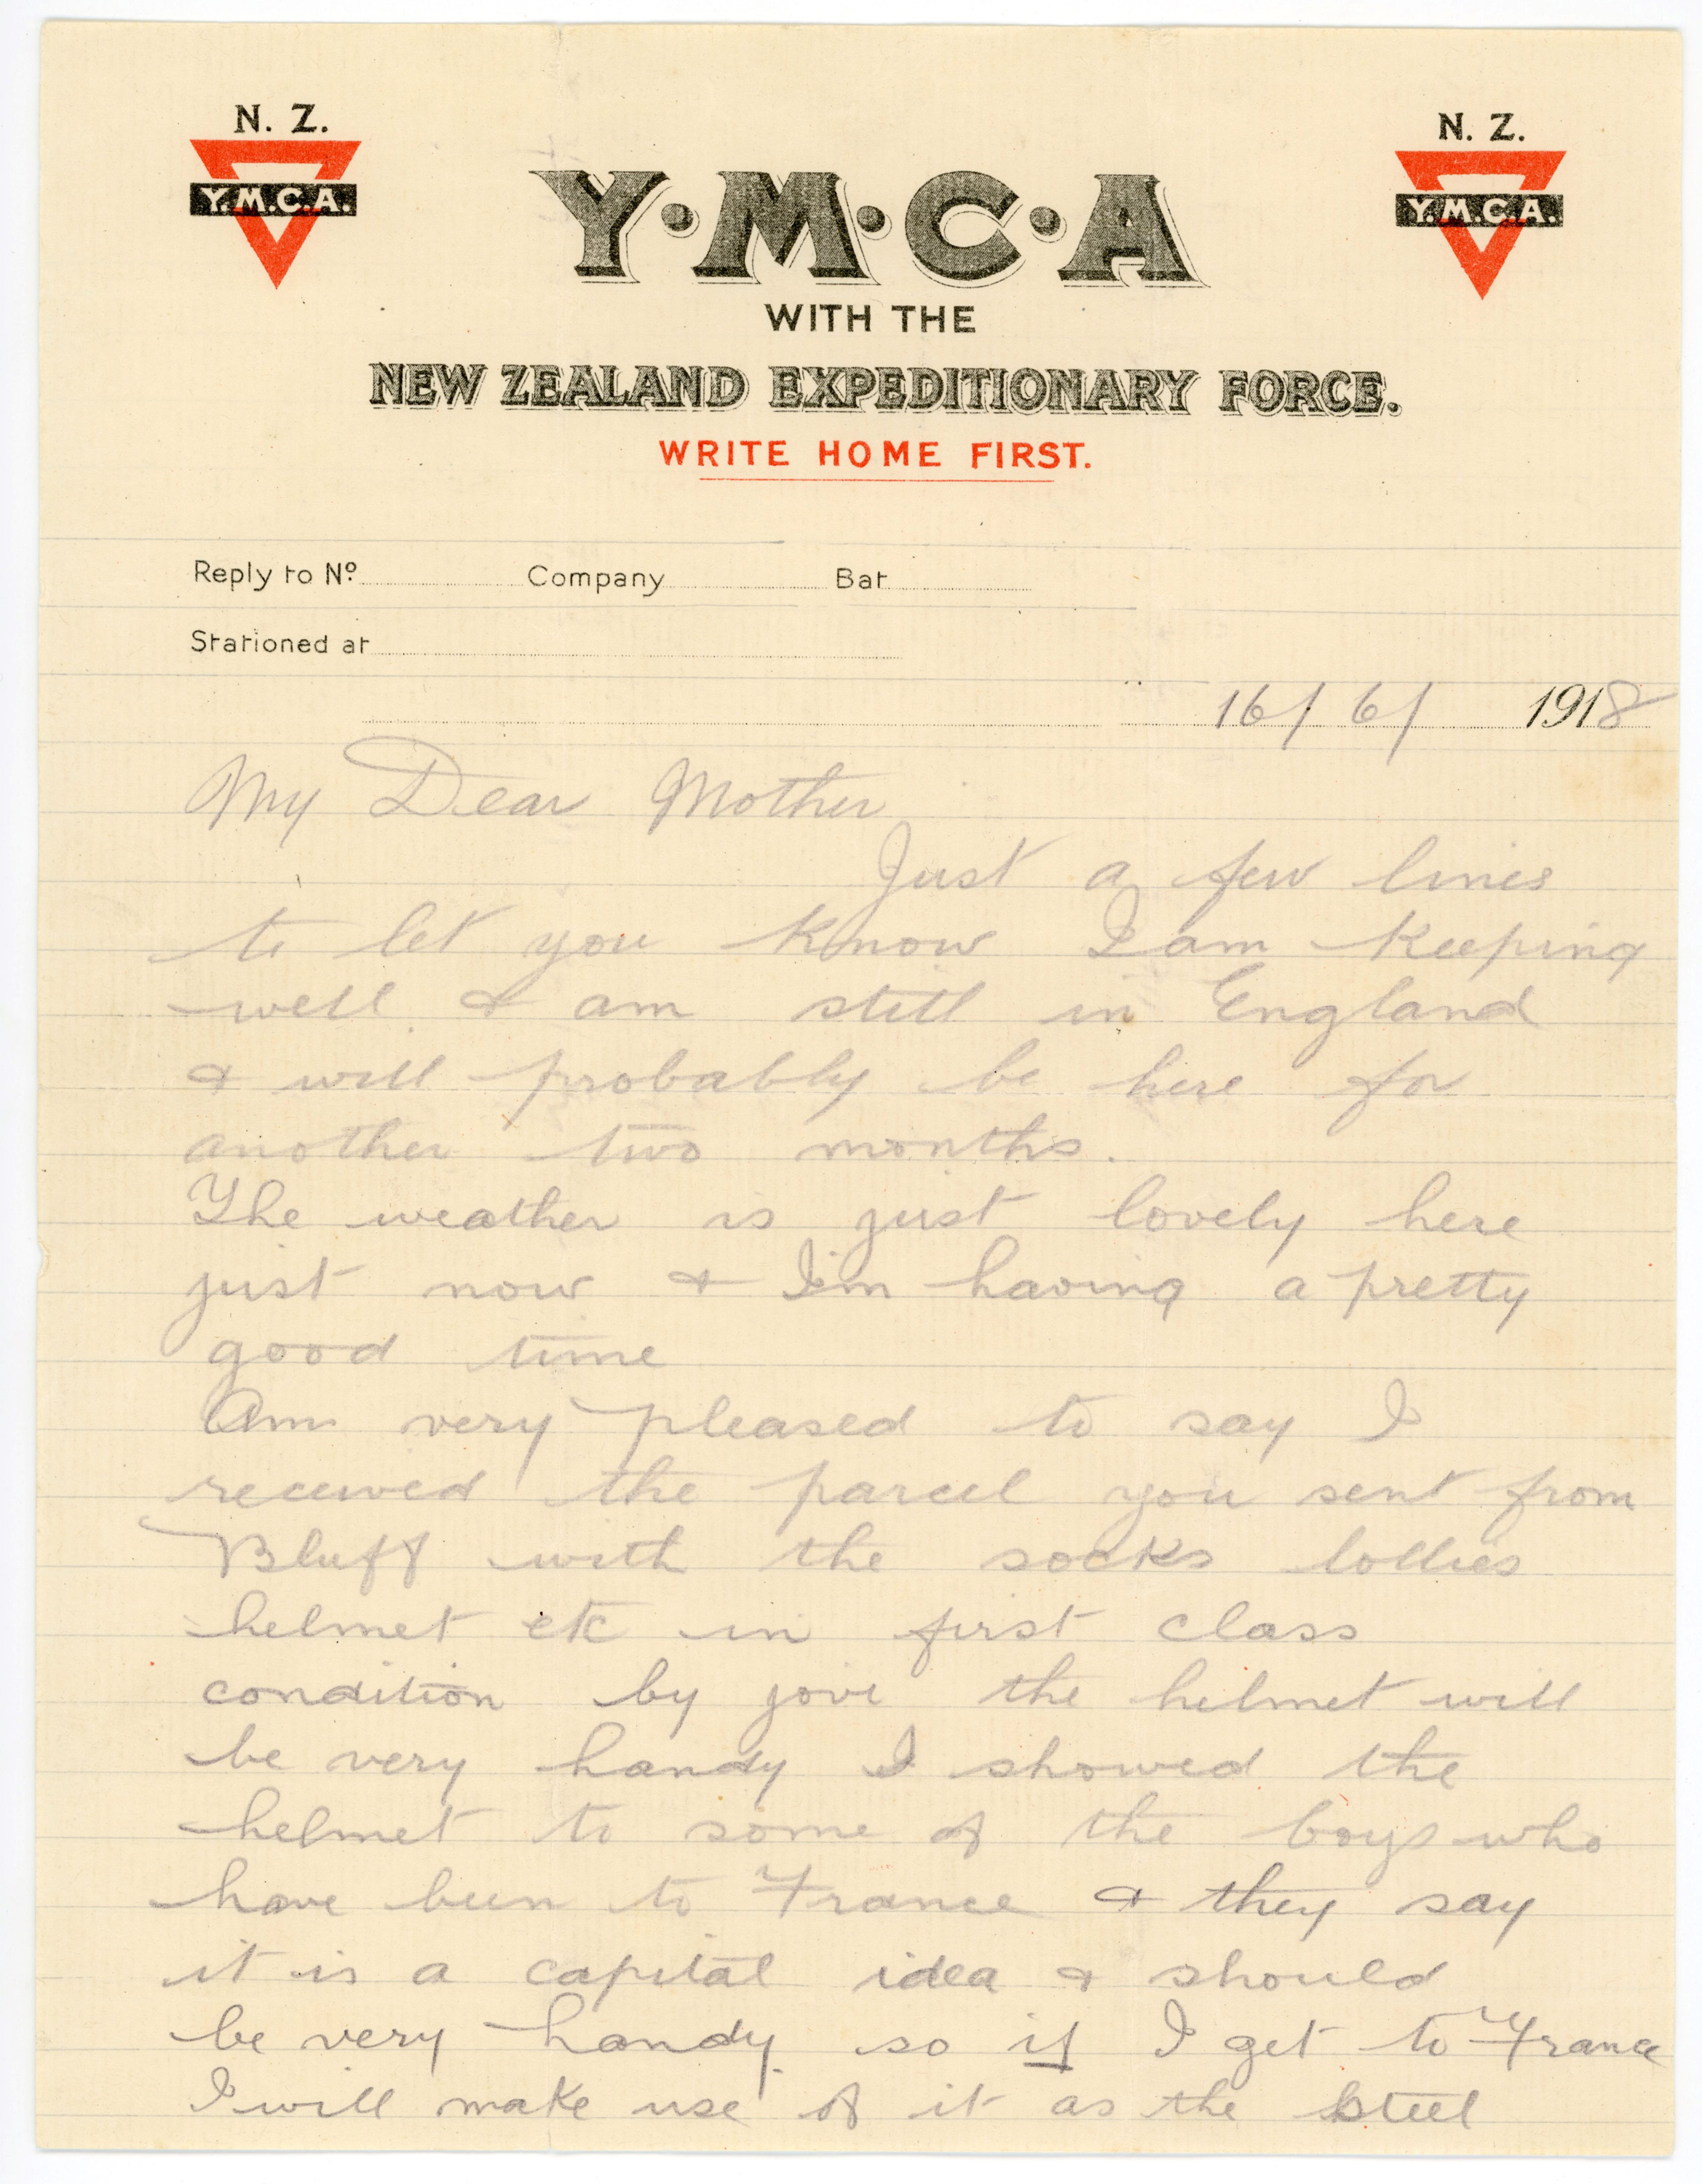 N. Z.
Y.M.C.A.
N. Z.
Y.M.C.A.
Y·M·C·A
WITH THE
NEW ZEALAND EXPEDITIONARY FORCE.
WRITE HOME FIRST.
Reply to Nº Company Bat
Stationed at
16/6/ 1918
My Dear Mother
Just a few lines
to let you know I am keeping
well & am still in England
& will probably be here for
another two months.
The weather is just lovely here
just now & I'm having a pretty
good time
Am very pleased to say I
received the parcel you sent from
Bluff with the socks lollies
helmet etc in first class
condition by jove the helmet will
be very handy I showed the
helmet to some of the boys who
have been to France & they say
it is a capital idea & should
be very handy so if I get to France
I will make use of it as the steel